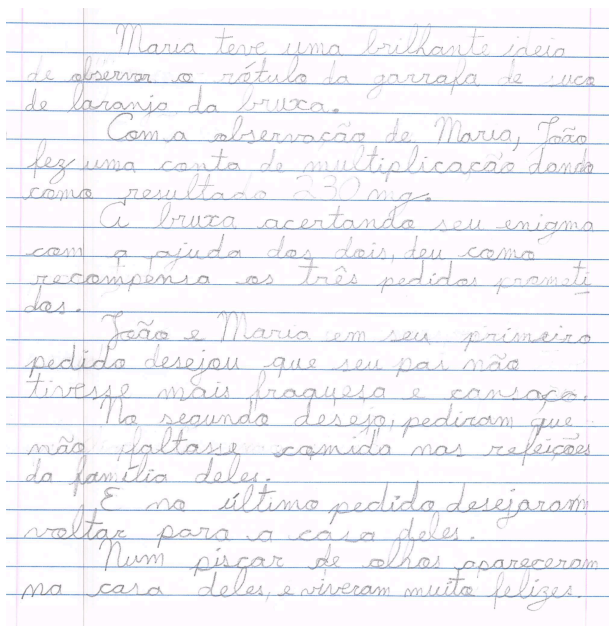 Maria teve uma brilhante ideia
de observar o rótulo da garrafa de suco
de laranja da bruxa.
Com a observação de Maria, João
fez uma conta de multiplicação dando
como resultado 230 mg.
A bruxa acertando seu enigma
com a ajuda dos dois, deu como
recompensa os três pedidos prometi
dos.
João e Maria em seu primeiro
pedido desejou que seu pai não
tivesse mais fraquesa e cansaço.
No segundo desejo, pediram que
não faltasse comida nas refeições
da família deles.
E no último pedido, desejaram
voltar para a casa deles.
Num piscar de olhos apareceram
na casa deles, e viveram muito felizes.